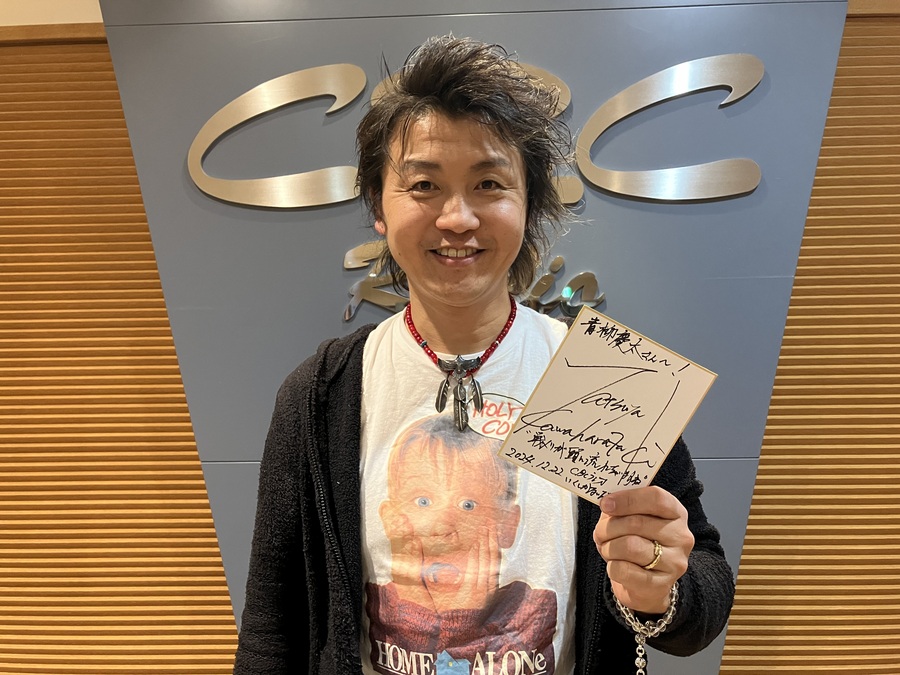 CBC
Radio
青柳慶太さんへ!
Tatsuya
Kawaharazaki
2024.12.22 CBCラジオ
HOLY
CO
HOME ALONe